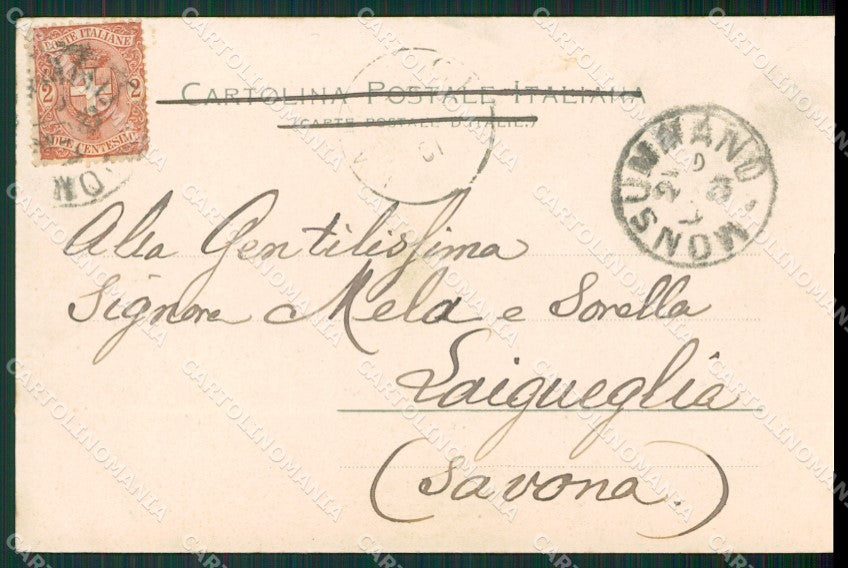 POSTE ITALIANE
2 2
DUE CENTESIMI
CARTOLINA POSTALE ITALIANA
(CARTE POSTALE D'ITALIE.)
MONSUMMANO
Alla Gentilissima
Signora Mela e Sorella
Laigueglia
(Savona.)
CARTOLINOMANIA